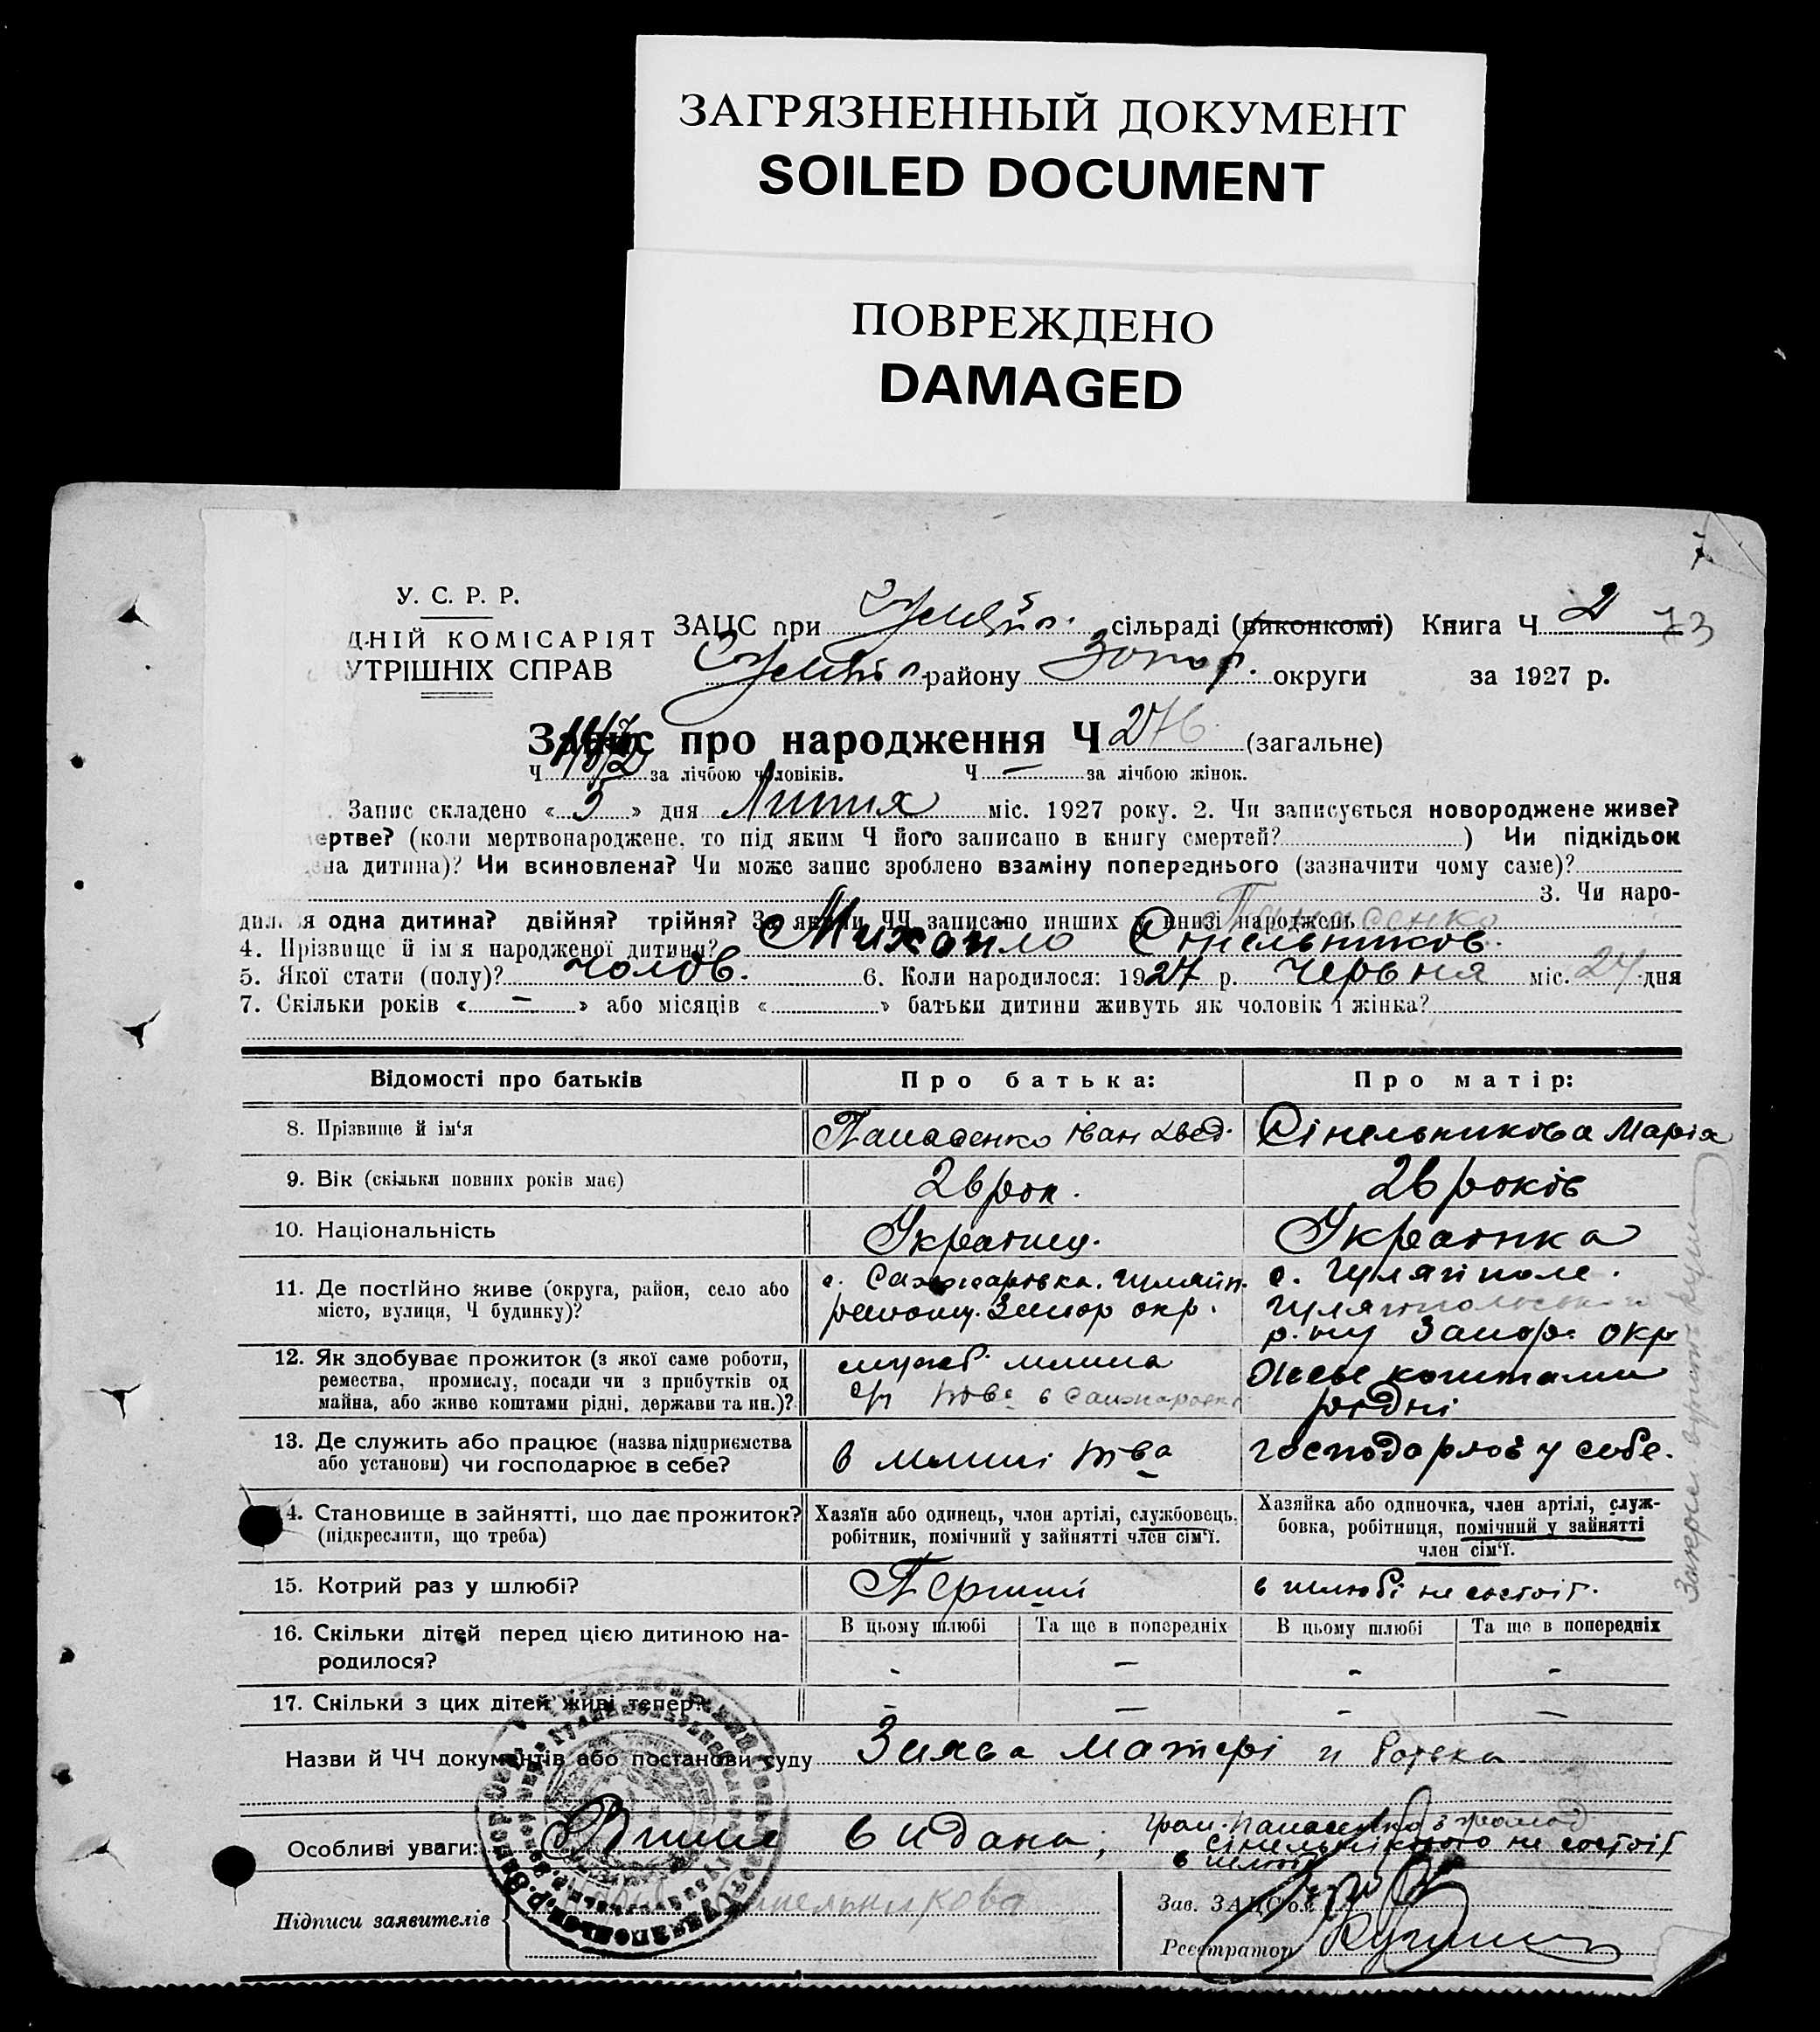 ЗАГРЯЗНЕННЫЙ ДОКУМЕНТ
SOILED DOCUMENT
ПОВРЕЖДЕНО
DAMAGED
У. С. Р. Р.
ДНІЙ КОМІСАРІЯТ
УТРІШНІХ СПРАВ
ЗАЦС при сільраді (виконкомі) Книга Ч 2 73
району Запор. округи за 1927 р.
Запис про народження Ч 276 (загальне)
Ч за лічбою чоловіків. Ч — за лічбою жінок.
Запис складено « 5 » дня Липня міс. 1927 року. 2. Чи записується новороджене живе?
ертве? (коли мертвонароджене, то під яким Ч його записано в книгу смертей? ) Чи підкідьок
ена дитина)? Чи всиновлена? Чи може запис зроблено взаміну попереднього (зазначити чому саме)?
3. Чи наро-
дил я одна дитина? двійня? трійня? За якими ЧЧ записано инших у книзі народжень
Панасенко
4. Прізвище й ім'я народженої дитини? Михайло Сінельников.
5. Якої стати (полу)? чолов. 6. Коли народилося: 1927 р. червня міс. 24 дня
7. Скільки років « — » або місяців « » батьки дитини живуть як чоловік і жінка?
Відомості про батьків Про батька: Про матір:
8. Прізвище й ім'я Панасенко Іван Сінельникова Марія
9. Вік (скільки повних років має) 26 рок. 26 років
10. Національність Українец. Українка
11. Де постійно живе (округа, район, село або
місто, вулиця, Ч будинку)?
с. Санжарівка. Гуляйп.
району. Запор окр.
с. Гуляйполе.
Гуляйпольського
р-ну Запор. окр
12. Як здобуває прожиток (з якої саме роботи,
ремества, промислу, посади чи з прибутків од
майна, або живе коштами рідні, держави та ин.)?
служб. млина
с/г това в Санжаровке
живе коштами
рідні
13. Де служить або працює (назва підприємства
або установи) чи господарює в себе?
в млині т-ва
господарює у себе.
14. Становище в зайнятті, що дає прожиток?
(підкреслити, що треба)
Хазяїн або одинець, член артілі, службовець,
робітник, помічний у зайнятті член сім'ї.
Хазяйка або одиночка, член артілі, служ-
бовка, робітниця, помічний у зайнятті
член сім'ї.
15. Котрий раз у шлюбі? Перший в шлюбі не состоїт.
16. Скільки дітей перед цією дитиною на-
родилося?
В цьому шлюбі Та ще в попередніх В цьому шлюбі Та ще в попередніх
- — - -
17. Скільки з цих дітей живі тепер? - — - —
Назви й ЧЧ документів або постанови суду Заява матері и батька
Особливі уваги: видана; гром. Панасенко з громад
Сінельніковою не состоїт
в шлюбі
Підписи заявителів Синельникова
Зав. ЗАЦС'ом
Реєстратор